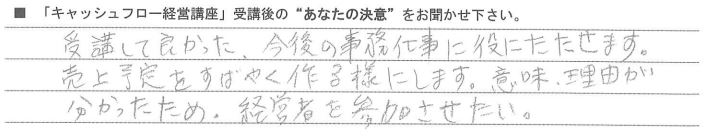 ■ 「キャッシュフロー経営講座」受講後の“あなたの決意”をお聞かせ下さい。
受講して良かった、今後の事務仕事に役にたたせます。
売上予定をすばやく作る様にします。意味、理由が
分かったため。経営者を参加させたい。